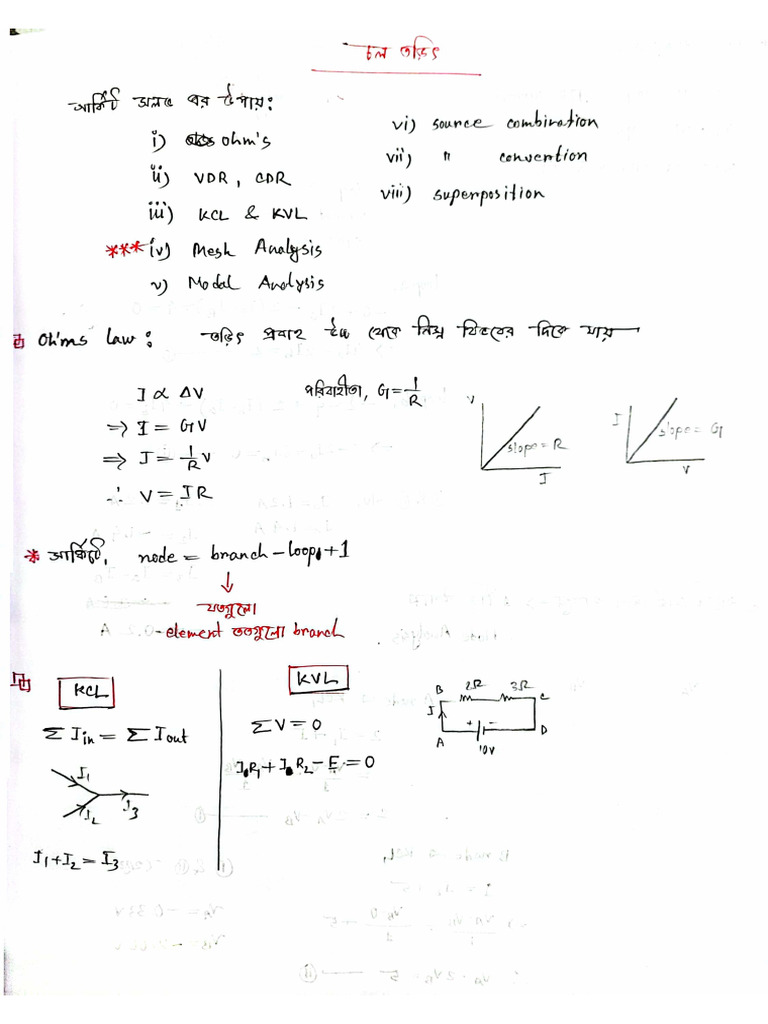 চল তড়িৎ
সার্কিট সলভ এর উপায়:
i) ohm's
ii) VDR, CDR
iii) KCL & KVL
***iv) Mesh Analysis
v) Nodal Analysis
vi) source combination
vii) " convention
viii) superposition
Ohms law: তড়িৎ প্রবাহ উচ্চ থেকে নিম্ন বিভবের দিকে যায়
I ∝ ΔV
⇒ I = GV
⇒ I = 1/R V
∴ V = IR
পরিবাহীতা, G = 1/R
V
slope = R
I
I
slope = G
V
* সার্কিটে, node = branch - loop + 1
↓
যতগুলো
element ততগুলো branch
KCL
Σ I_in = Σ I_out
I₁
I₂
I₃
I₁ + I₂ = I₃
KVL
ΣV = 0
I R₁ + I R₂ - E = 0
B 2Ω 3Ω C
I
+ -
A 10V D